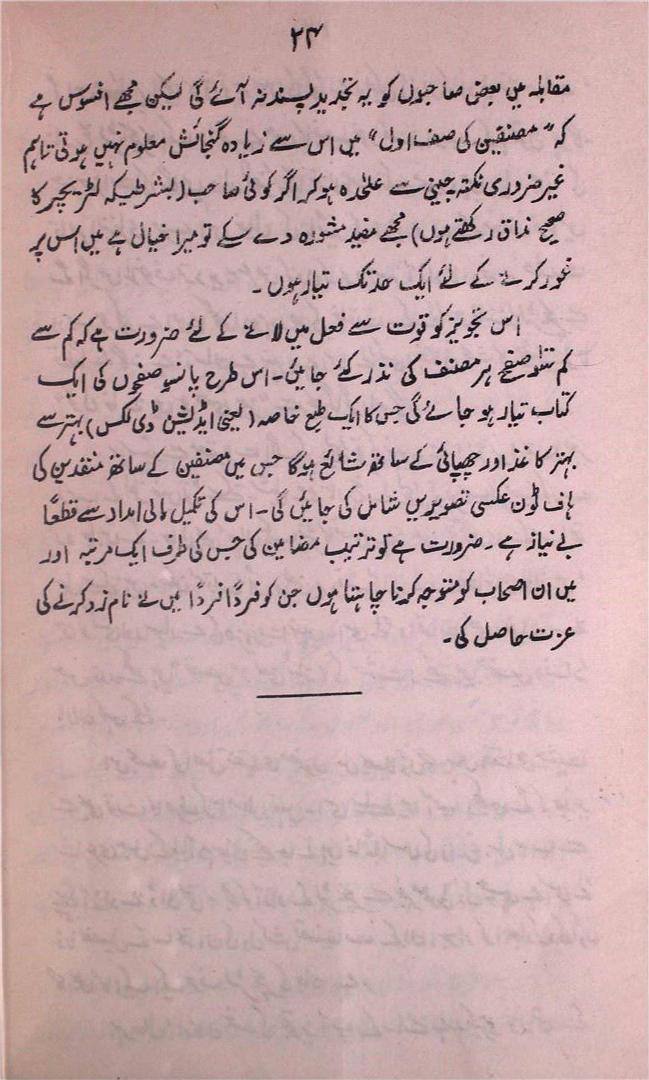 ۲۴
مقابلہ میں بعض صاحبوں کو یہ تجدید پسند نہ آئے گی لیکن مجھے افسوس ہے
کہ “مصنفین کی صف اول” میں اس سے زیادہ گنجائش معلوم نہیں ہوتی تاہم
غیر ضروری نکتہ چینی سے علٰحدہ ہو کر اگر کوئی صاحب (بشرطیکہ لٹریچر کا
صحیح مذاق رکھتے ہوں) مجھے مفید مشورہ دے سکے تو میرا خیال ہے میں اس پر
غور کرنے کے لئے ایک حد تک تیار ہوں۔
اس تجویز کو قوت سے فعل میں لانے کے لئے ضرورت ہے کہ کم سے
کم سَو صفحے ہر مصنف کی نذر کئے جائیں۔ اس طرح پانسو صفحوں کی ایک
کتاب تیار ہو جائے گی جس کا ایک طبع خاصہ (یعنی ایڈیشن ڈی لکس) بہتر سے
بہتر کاغذ اور چھپائی کے ساتھ شائع ہوگا جس میں مصنفین کے ساتھ متقدین کی
ہاف ٹون عکسی تصویریں شامل کی جائیں گی۔ اس کی تکمیل مالی امداد سے قطعًا
بے نیاز ہے۔ ضرورت ہے تو ترتیب مضامین کی جس کی طرف ایک مرتبہ اور
میں ان اصحاب کو متوجہ کرنا چاہتا ہوں جن کو فردًا فردًا میں نے نام زد کرنے کی
عزت حاصل کی۔